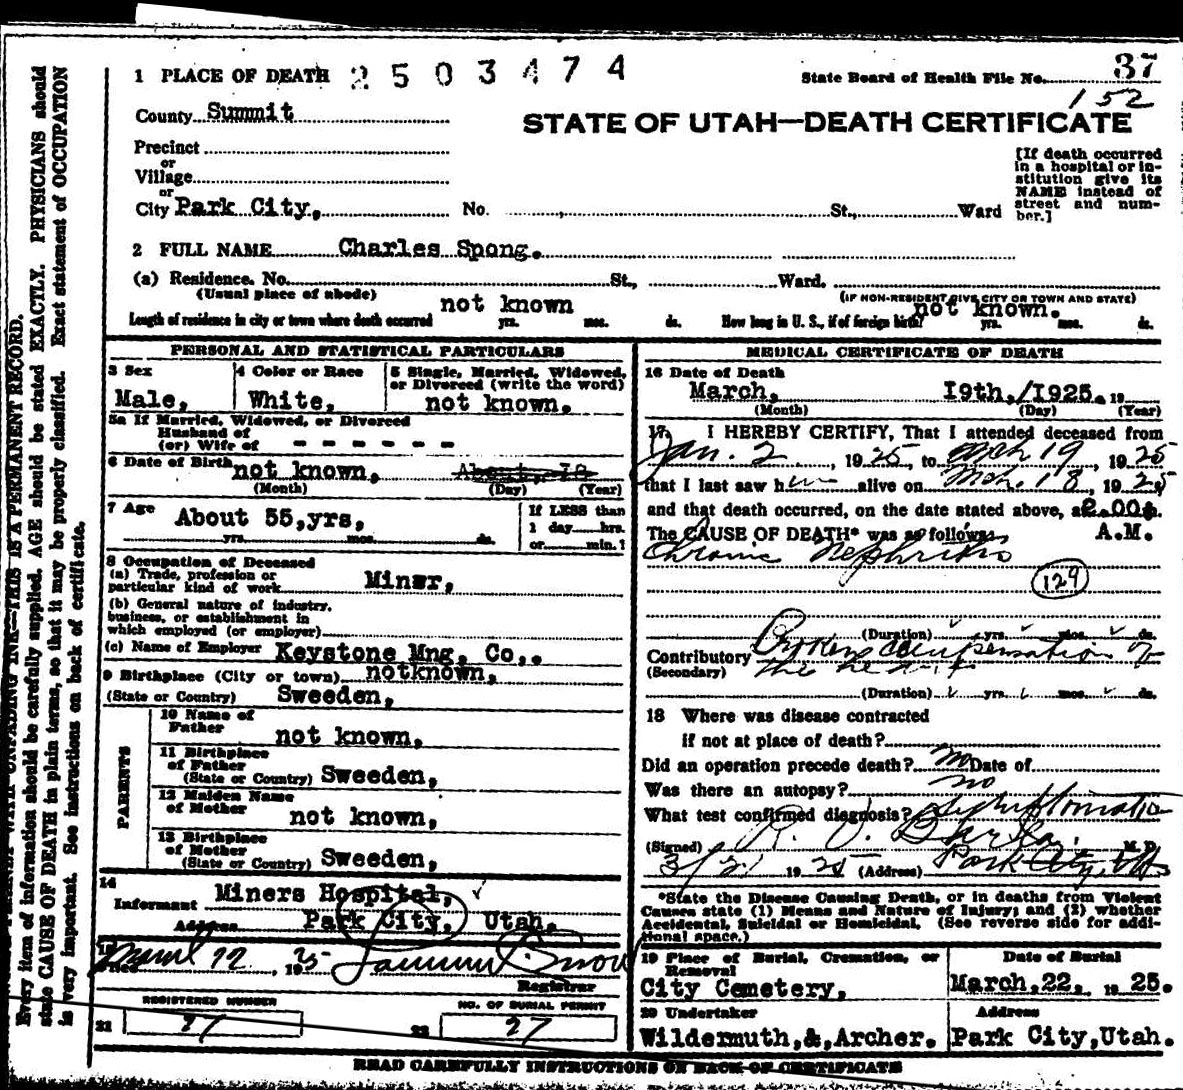 1 PLACE OF DEATH 2503474
State Board of Health File No. 37
152
County Summit
STATE OF UTAH—DEATH CERTIFICATE
Precinct
or
Village
or
City Park City, No. St., Ward
[If death occurred
in a hospital or in-
stitution give its
NAME instead of
street and num-
ber.]
2 FULL NAME Charles Spong.
(a) Residence. No. St., Ward.
(Usual place of abode)
(IF NON-RESIDENT GIVE CITY OR TOWN AND STATE)
not known not known.
Length of residence in city or town where death occurred yrs. mos. ds. How long in U. S., if of foreign birth? yrs. mos. ds.
PERSONAL AND STATISTICAL PARTICULARS
3 Sex
Male,
4 Color or Race
White,
5 Single, Married, Widowed,
or Divorced (write the word)
not known.
5a If Married, Widowed, or Divorced
Husband of
(or) Wife of - - - - - -
6 Date of Birth not known, About, 18
(Month) (Day) (Year)
7 Age About 55,yrs,
yrs. mos. ds.
If LESS than
1 day hrs.
or min.?
8 Occupation of Deceased
(a) Trade, profession or
particular kind of work Minsr,
(b) General nature of industry,
business, or establishment in
which employed (or employer)
(c) Name of Employer Keystone Mng. Co,.
9 Birthplace (City or town) notknown,
(State or Country) Sweeden,
PARENTS
10 Name of
Father not known,
11 Birthplace
of Father
(State or Country) Sweeden,
12 Maiden Name
of Mother not known,
13 Birthplace
of Mother
(State or Country) Sweeden,
14
Informant Miners Hospital,
Address Park City, Utah.
Filed March 22, 1925
Registrar
REGISTERED NUMBER
21 27
NO. OF BURIAL PERMIT
22 27
MEDICAL CERTIFICATE OF DEATH
16 Date of Death
March, 19th,/1925. 19
(Month) (Day) (Year)
17. I HEREBY CERTIFY, That I attended deceased from
Jan. 2, 1925, to Mch 19, 1925
that I last saw him alive on Mch. 18, 1925
and that death occurred, on the date stated above, at 2.00 p.
The CAUSE OF DEATH* was as follows: A.M.
Chronic Nephritis
129
(Duration) yrs. mos. ds.
Contributory Broken compensation of
(Secondary) the heart
(Duration) yrs. mos. ds.
18 Where was disease contracted
if not at place of death?
Did an operation precede death? no Date of
Was there an autopsy? no
What test confirmed diagnosis?
(Signed) M. D.
3/21 1925 (Address) Park City, Utah
*State the Disease Causing Death, or in deaths from Violent
Causes state (1) Means and Nature of Injury; and (2) whether
Accidental, Suicidal or Homicidal. (See reverse side for addi-
tional space.)
19 Place of Burial, Cremation, or
Removal
City Cemetery,
Date of Burial
March,22, 1925.
20 Undertaker
Wildermuth,&,Archer.
Address
Park City,Utah.
READ CAREFULLY INSTRUCTIONS ON BACK OF CERTIFICATE
THIS IS A PERMANENT RECORD.
Every item of information should be carefully supplied. AGE should be stated EXACTLY. PHYSICIANS should
state CAUSE OF DEATH in plain terms, so that it may be properly classified. Exact statement of OCCUPATION
is very important. See instructions on back of certificate.